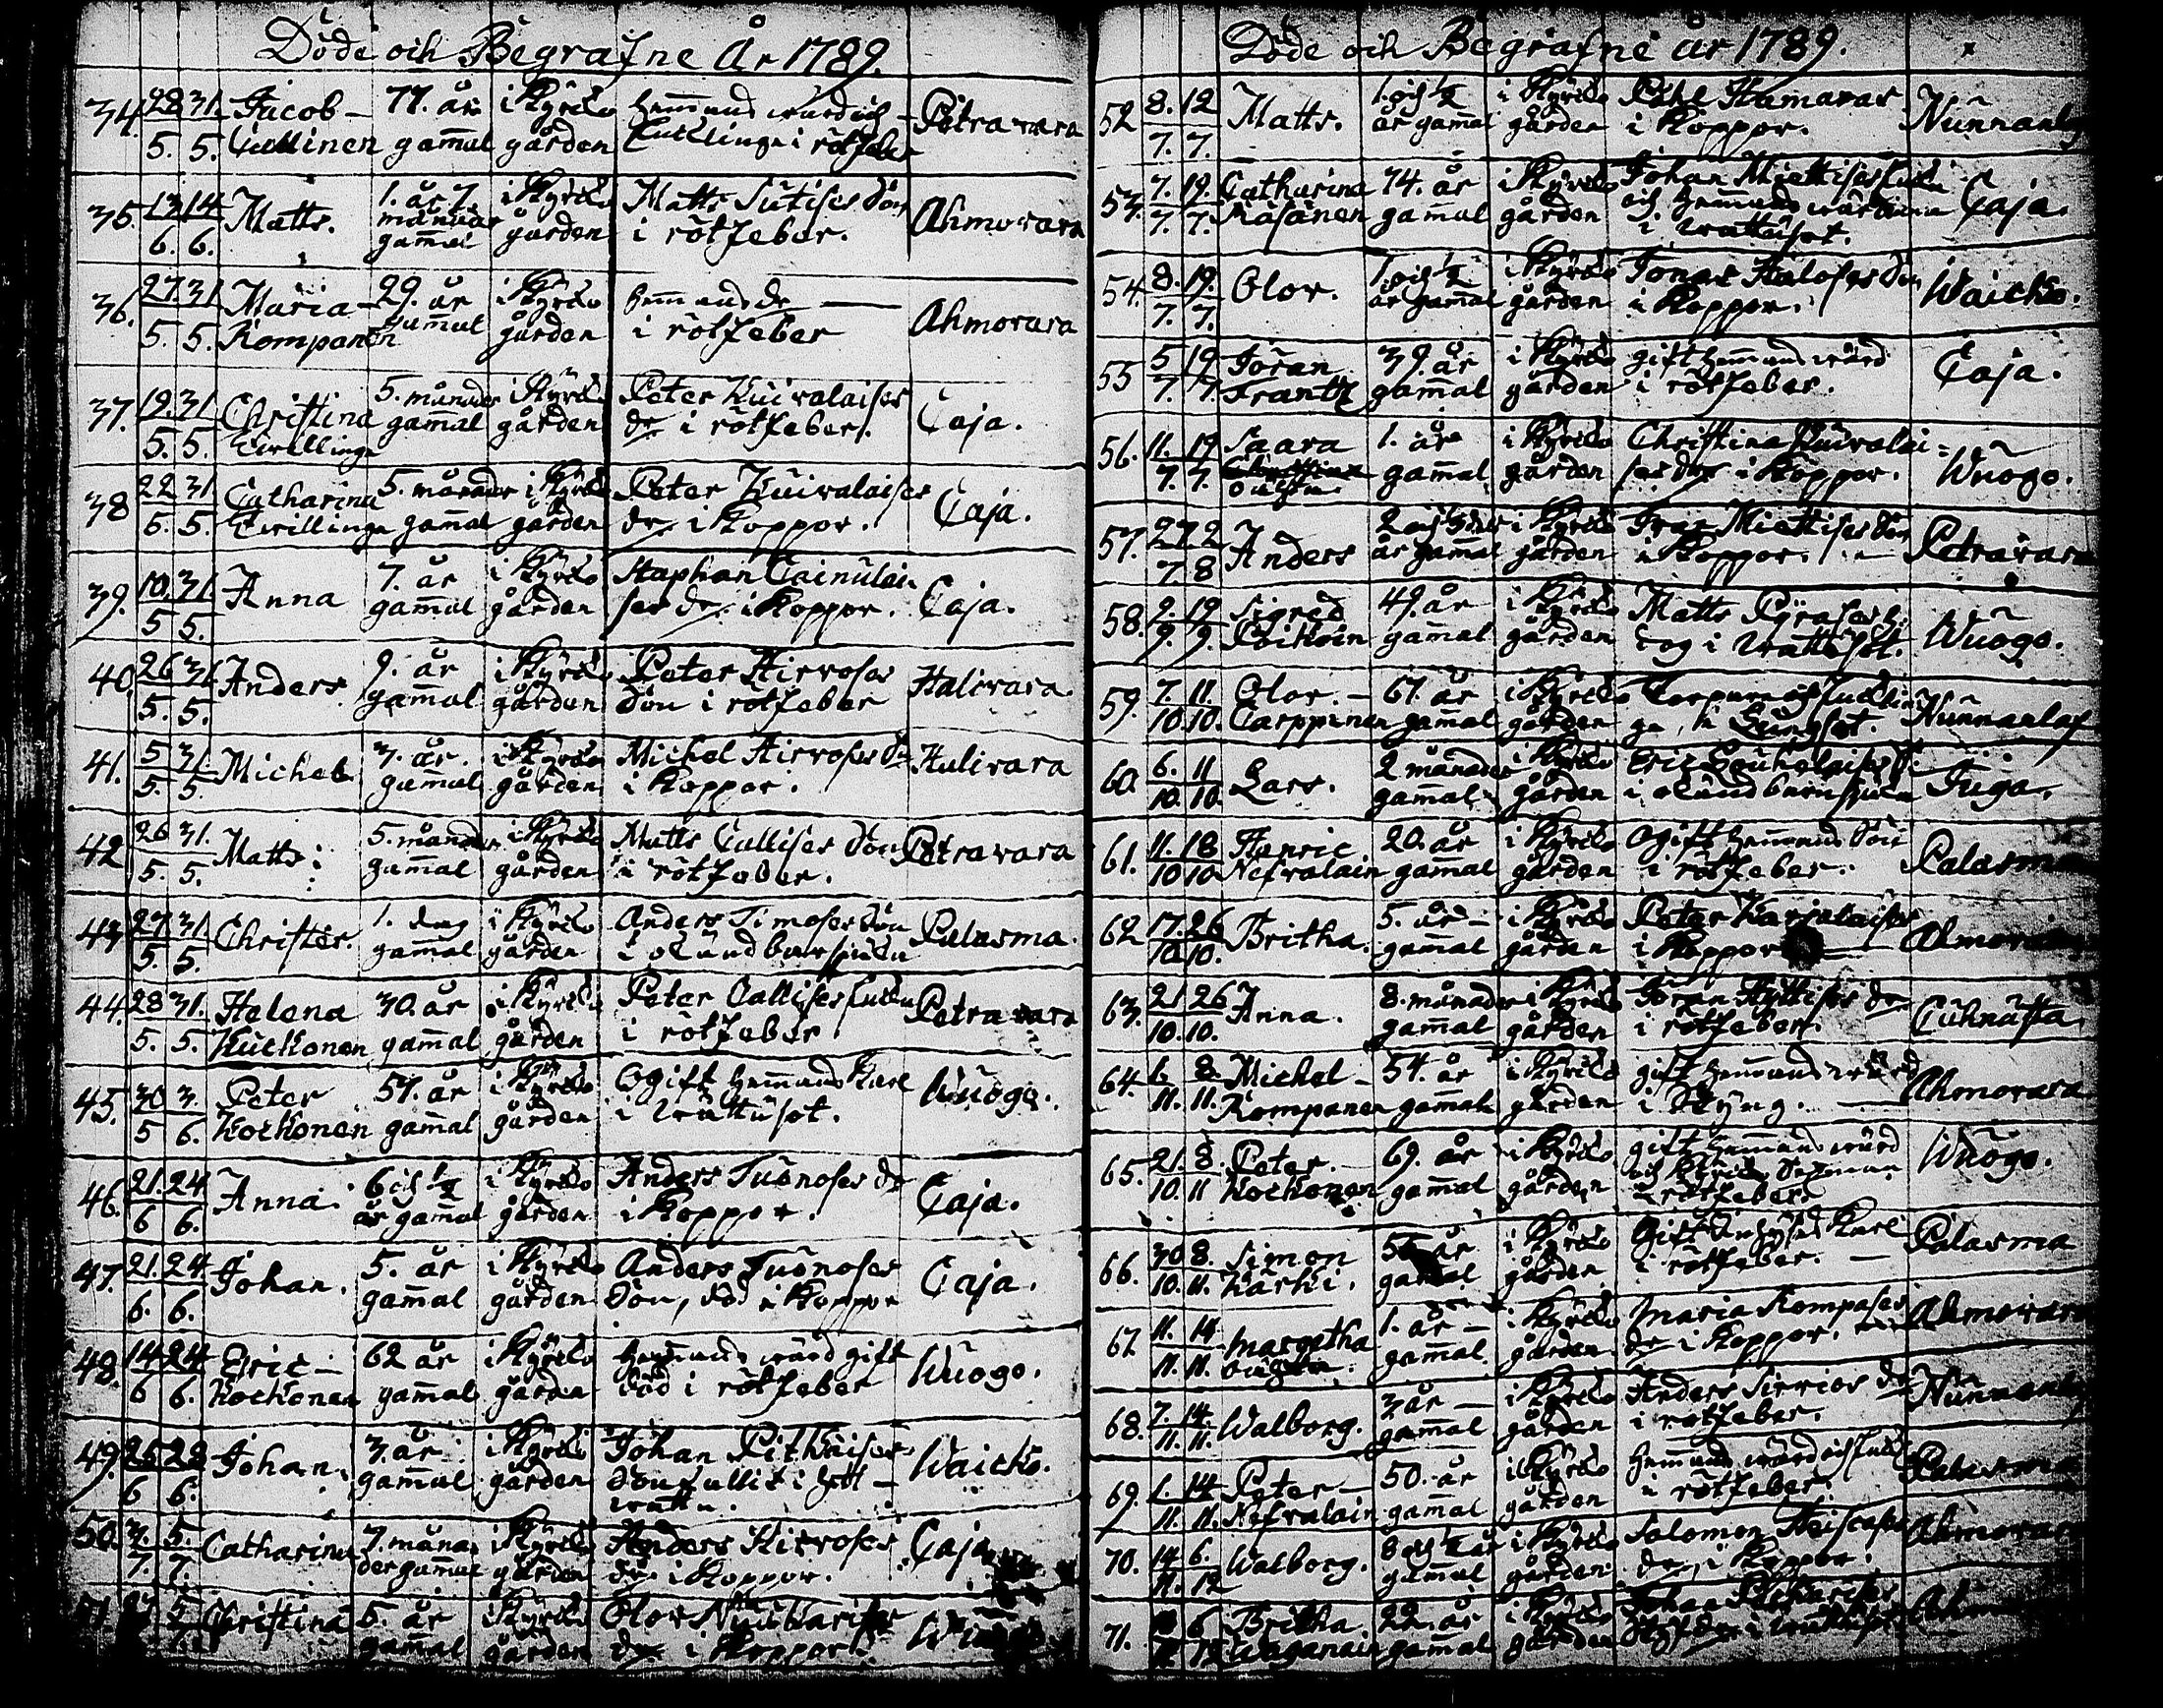 Döde och Begrafne År 1789.
34. 28/5. 31/5. Jacob Cullinen 77. år gam̄al i Kyrko gården hem̄ans wärd och i rötfeber Petravara
35. 13/6. 14/6. Matts. 1. år 7. månader gam̄al i Kyrko gården Matts Sutises Son i rötfeber. Ahmovara
36. 27/5. 31/5. Maria Romponen 29. år gam̄al i Kyrko gården hem̄ans dr i rötfeber Ahmovara
37. 19/5. 31/5. Christina Twillinge 5. månader gam̄al i Kyrko gården Peter Kuivalaises dr i rötfeber. Caja.
38 22/5. 31/5. Catharina Twillinge 5. månader gam̄al i Kyrko gården Peter Kuivalaises dr i Koppor. Caja.
39. 10/5 31/5. Anna 7. år gam̄al i Kyrko gården Staphan Cainulai ses dr i Koppor. Caja.
40. 26/5. 31/5. Anders 9. år gam̄al i Kyrko gården Peter Hirvoses Son i rötfeber Halivara
41. 5/5. 31/5. Michel 3. år. gam̄al i Kyrko gården Michel Hirvoses Sn i Koppor. Halivara
42 26/5. 31/5. Matts. 5. månader gam̄al i Kyrko gården Matts Cullises Son i rötfeber. Petravara
43 27/5. 31/5. Christer. 1. dag gam̄al i Kyrko gården Anders Timoses Son i okänd barnsjuka Palasma.
44. 28/5. 31/5. Helena Kuckonen 30. år gam̄al i Kyrko gården Peter Callises i rötfeber Petravara
45. 30/5 3/6. Peter Kockonen 57. år gam̄al i Kyrko gården Ogift hem̄ans Karl i wattusot. Wuogo.
46. 21/6 24/6. Anna. 6 och 1/2 år gam̄al i Kyrko gården Anders Tuonoses dr i Koppor. Caja.
47. 21/6. 24/6. Johan. 5. år gam̄al i Kyrko gården Anders Tuonoses Son, död i Koppor Caja.
48. 14/6 24/6. Eric Kockonen 62 år gam̄al i Kyrko gården Hem̄ans wärd gift död i rötfeber Wuogo.
49. 25/6 28/6. Johan. 3. år gam̄al i Kyrko gården Johan Pitkäises Son fallit i hett wattn. Waicko.
50. 3/7. 5/7. Catharina 7. måna der gam̄al i Kyrko gården Anders Hirvoses dr i Koppor. Caja
51. 5 Christina 5. år gam̄al i Kyrko gården Olov dr i Koppor.
Döde och Begrafne år 1789.
52 8/7. 12/7. Matts. 1. och 1/2 år gam̄al i Kyrko gården Påhl Hamaras i Koppor. Nunnanlax
53. 7/7. 19/7. Catharina Räsänen 74. år gam̄al i Kyrko gården Johan Miettises och hem̄ans wärdinna i wattusot. Caja.
54. 8/7. 19/7. Olov. 1. och 1/2 år gam̄al i Kyrko gården Jonas Haloses Son i Koppor. Waicko.
55 5/7. 19/7. Jöran Frantz 39. år gam̄al i Kyrko gården gift hem̄ans wärd i rötfeber. Caja.
56. 11/7. 19/7. Saara oächta 1. år gam̄al i Kyrko gården Christina Kuivalai= ses dr i Koppor. Wuogo.
57. 27/7 2/8 Anders 2 år gam̄al i Kyrko gården Miettises Son i Koppor. Petravara
58. 9/9. 19/9. Sigred Coikoin 49. år gam̄al i Kyrko gården Matts Pyräses dog i wattusot. Wuogo.
59. 7/10. 11/10. Olov Carppinen 67. år gam̄al i Kyrko gården i Lungsot. Nunnanlax
60. 6/10. 11/10. Lars. 2 månader gam̄al i Kyrko gården Eric Louhelaises Sn i okänd barnsjuka Juga.
61. 11/10 18/10 Henric Nefvalain 20. år gam̄al i Kyrko gården Ogift hem̄ans Son i rötfeber. Palasma
62 17/10. 26/10. Britha. 5. år gam̄al i Kyrko gården Peter Karjalaises i Koppor Ahmovara
63. 21/10. 26/10. Anna. 8. månader gam̄al i Kyrko gården Jöran Hyttises dr i rötfeber. Cuhnusta
64. 6/11. 8/11. Michel Rompanen 54. år gam̄al i Kyrko gården gift hem̄ans wärd i Styng. Ahmovara
65. 21/10. 8/11 Peter Kockonen 69. år gam̄al i Kyrko gården gift hem̄ans wärd och Kyrko Sexman i rötfeber. Wuogo.
66. 30/10. 8/11. Simon Kärki. år gam̄al i Kyrko gården Gift Inhyses Karl i rötfeber. Palasma
67 11/11. 14/11. Margetha oächta. 1. år gam̄al i Kyrko gården Maria Rompases dr i Koppor. Ahmovara
68. 7/11. 14/11. Walborg. 3 år gam̄al i Kyrko gården Anders Sirvios dr i rötfeber. Nunnanlax
69. 1/11. 14/11. Peter Nefvalain 50. år gam̄al i Kyrko gården Hem̄ans wärd och i rötfeber. Palasma
70. 14/11. 6/12 Walborg. 8 och 1/2 år gam̄al i Kyrko gården Salomon Heiscases dr i Koppor. Ahmovara
71. 6/12 Britha 22. år gam̄al i Kyrko gården Johan i wattusot